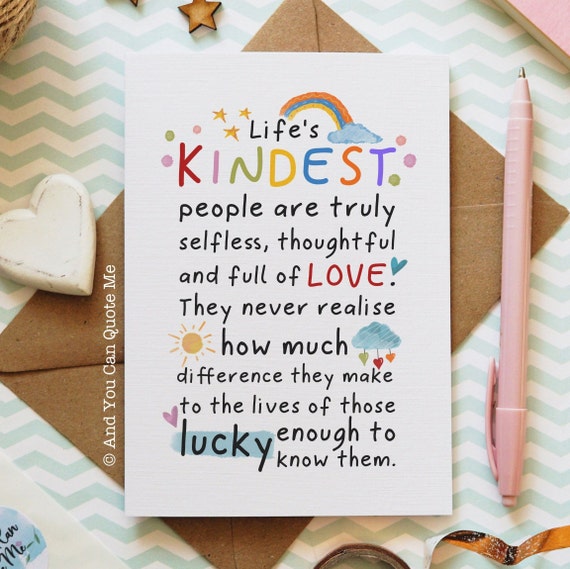 Life's
KINDEST
people are truly
selfless, thoughtful
and full of LOVE.
They never realise
how much
difference they make
to the lives of those
lucky enough to
know them.
© And You Can Quote Me